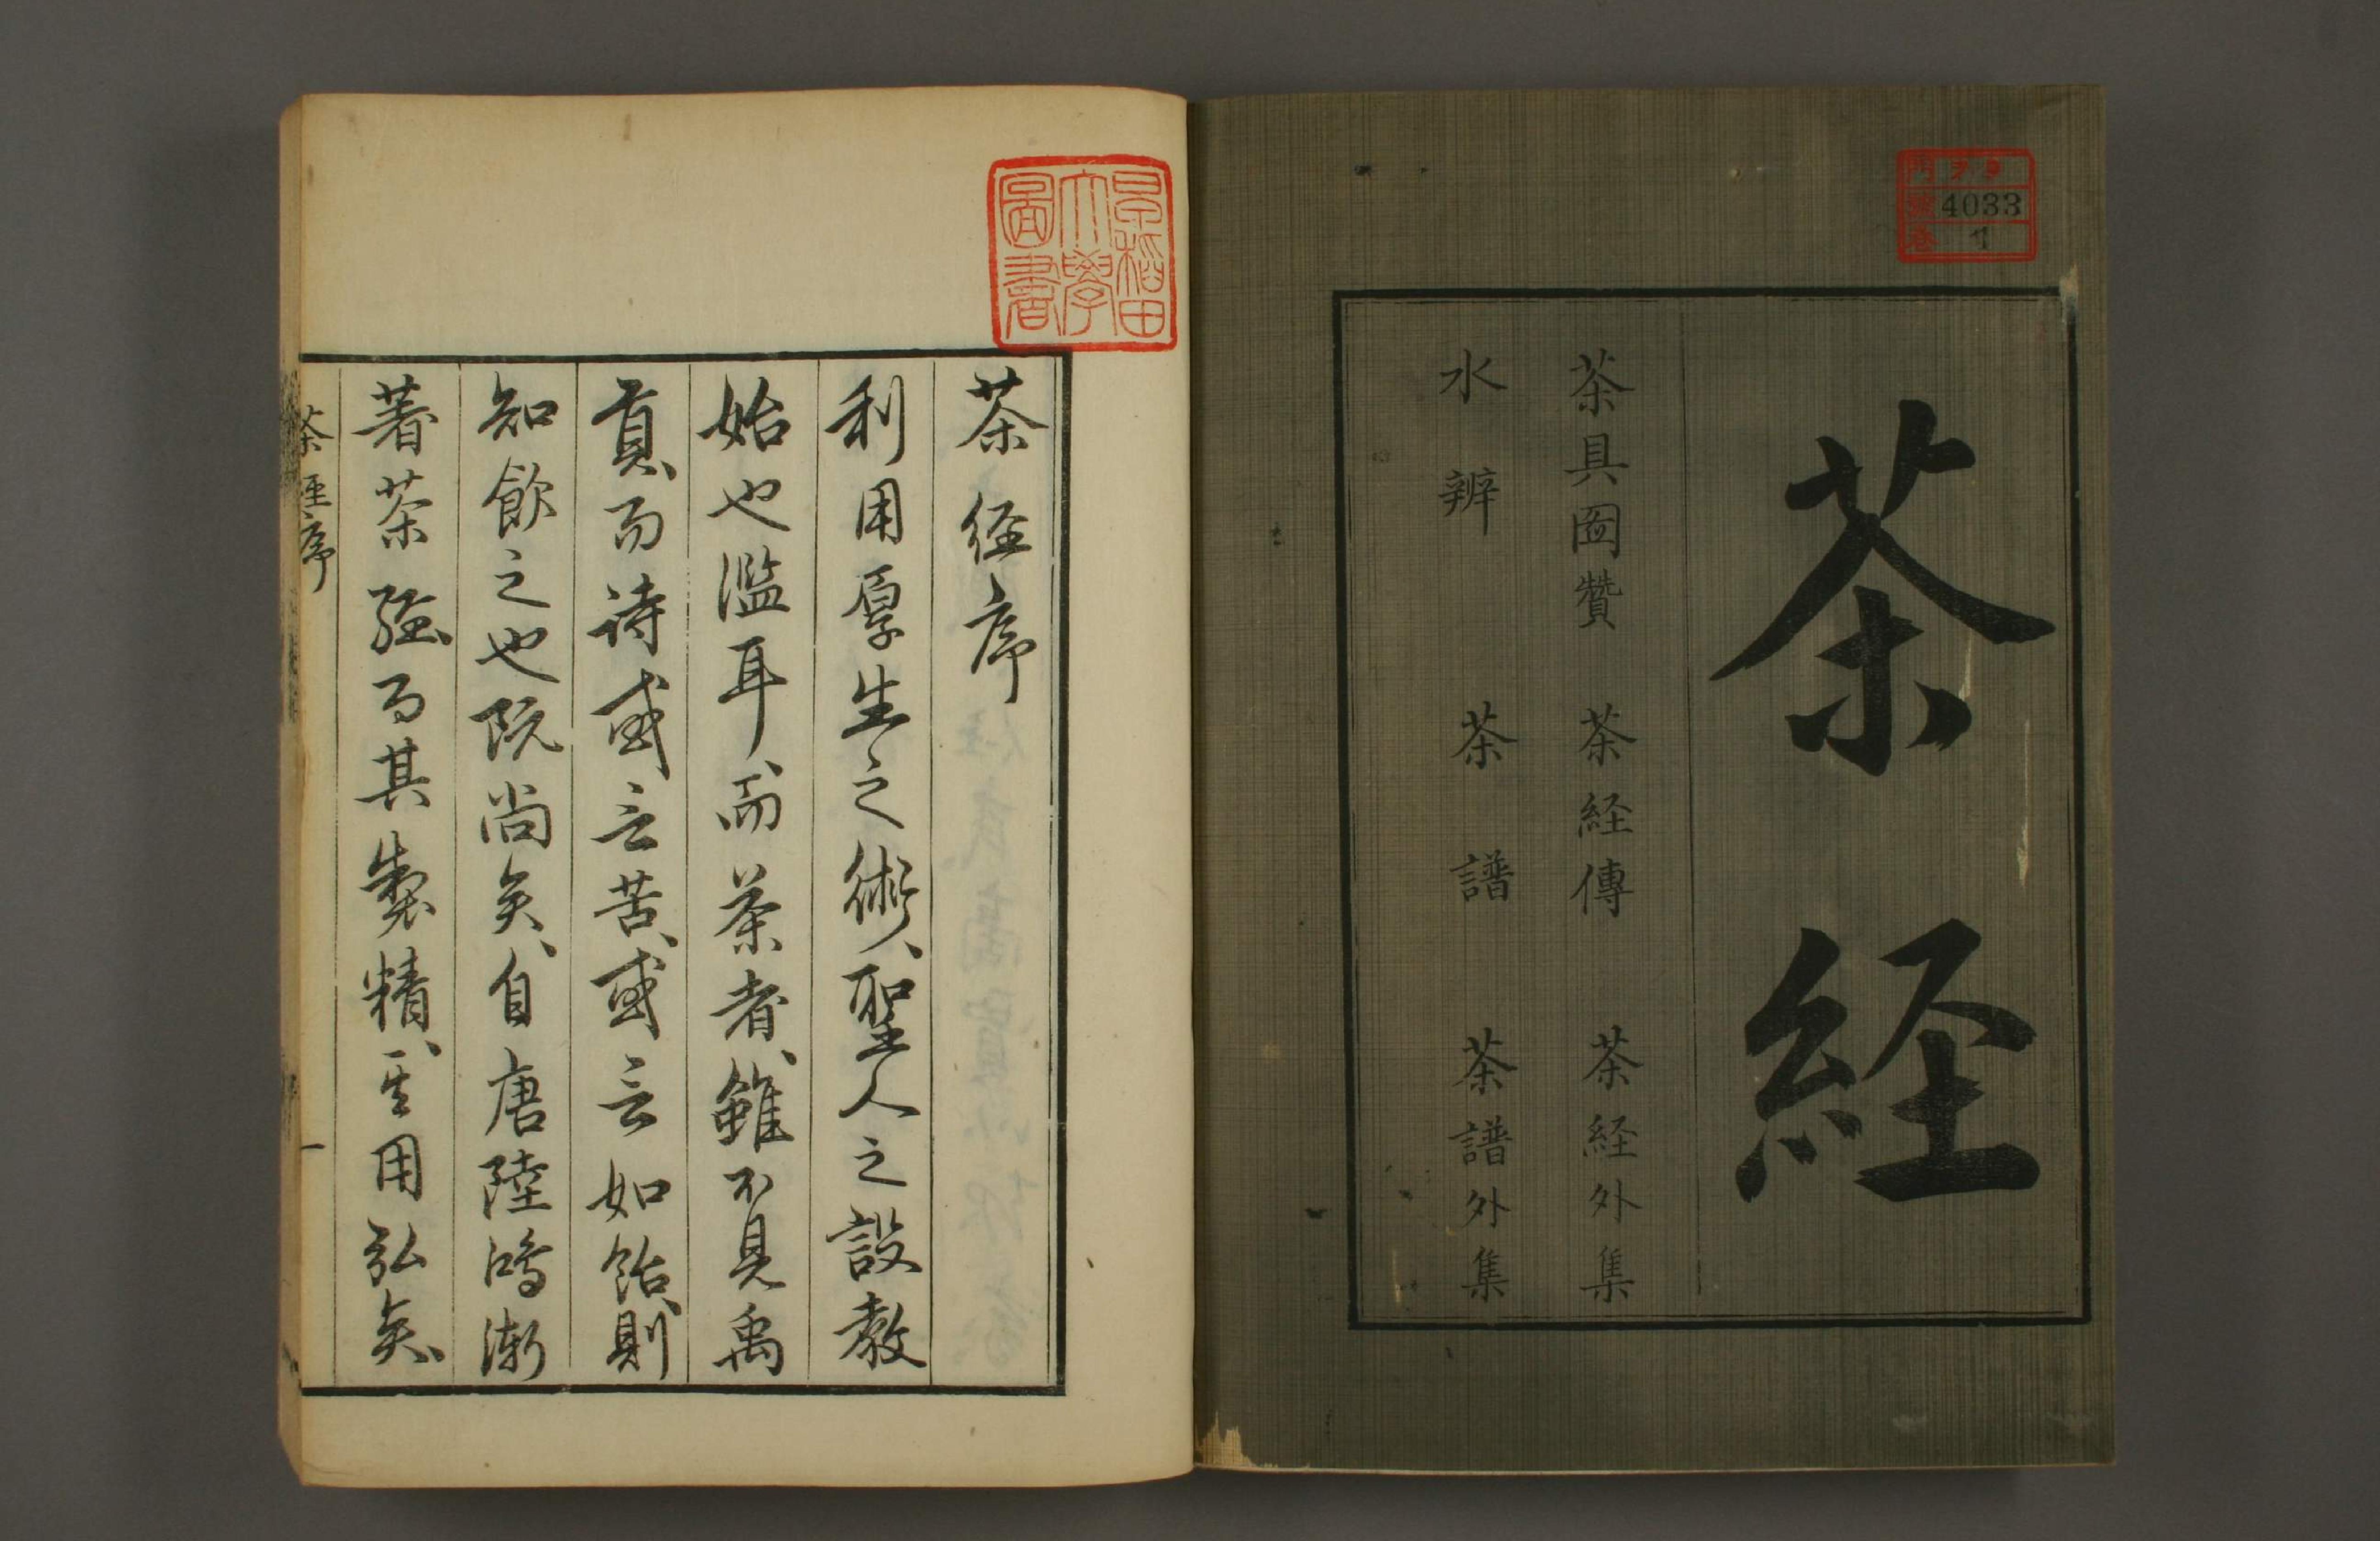 門 ヲ 9
號 4033
巻 1
茶経
茶具圖贊 茶経傳 茶経外集
水辨 茶譜 茶譜外集
早稲田
大學
圖書
茶経序
利用厚生之術、聖人之設教
始也濫耳、而茶者、雖不見禹
貢、而詩或言苦、或言如飴、則
知飲之也既尚矣、自唐陸鴻漸
著茶経、而其製精、其用弘矣、
茶経序
一